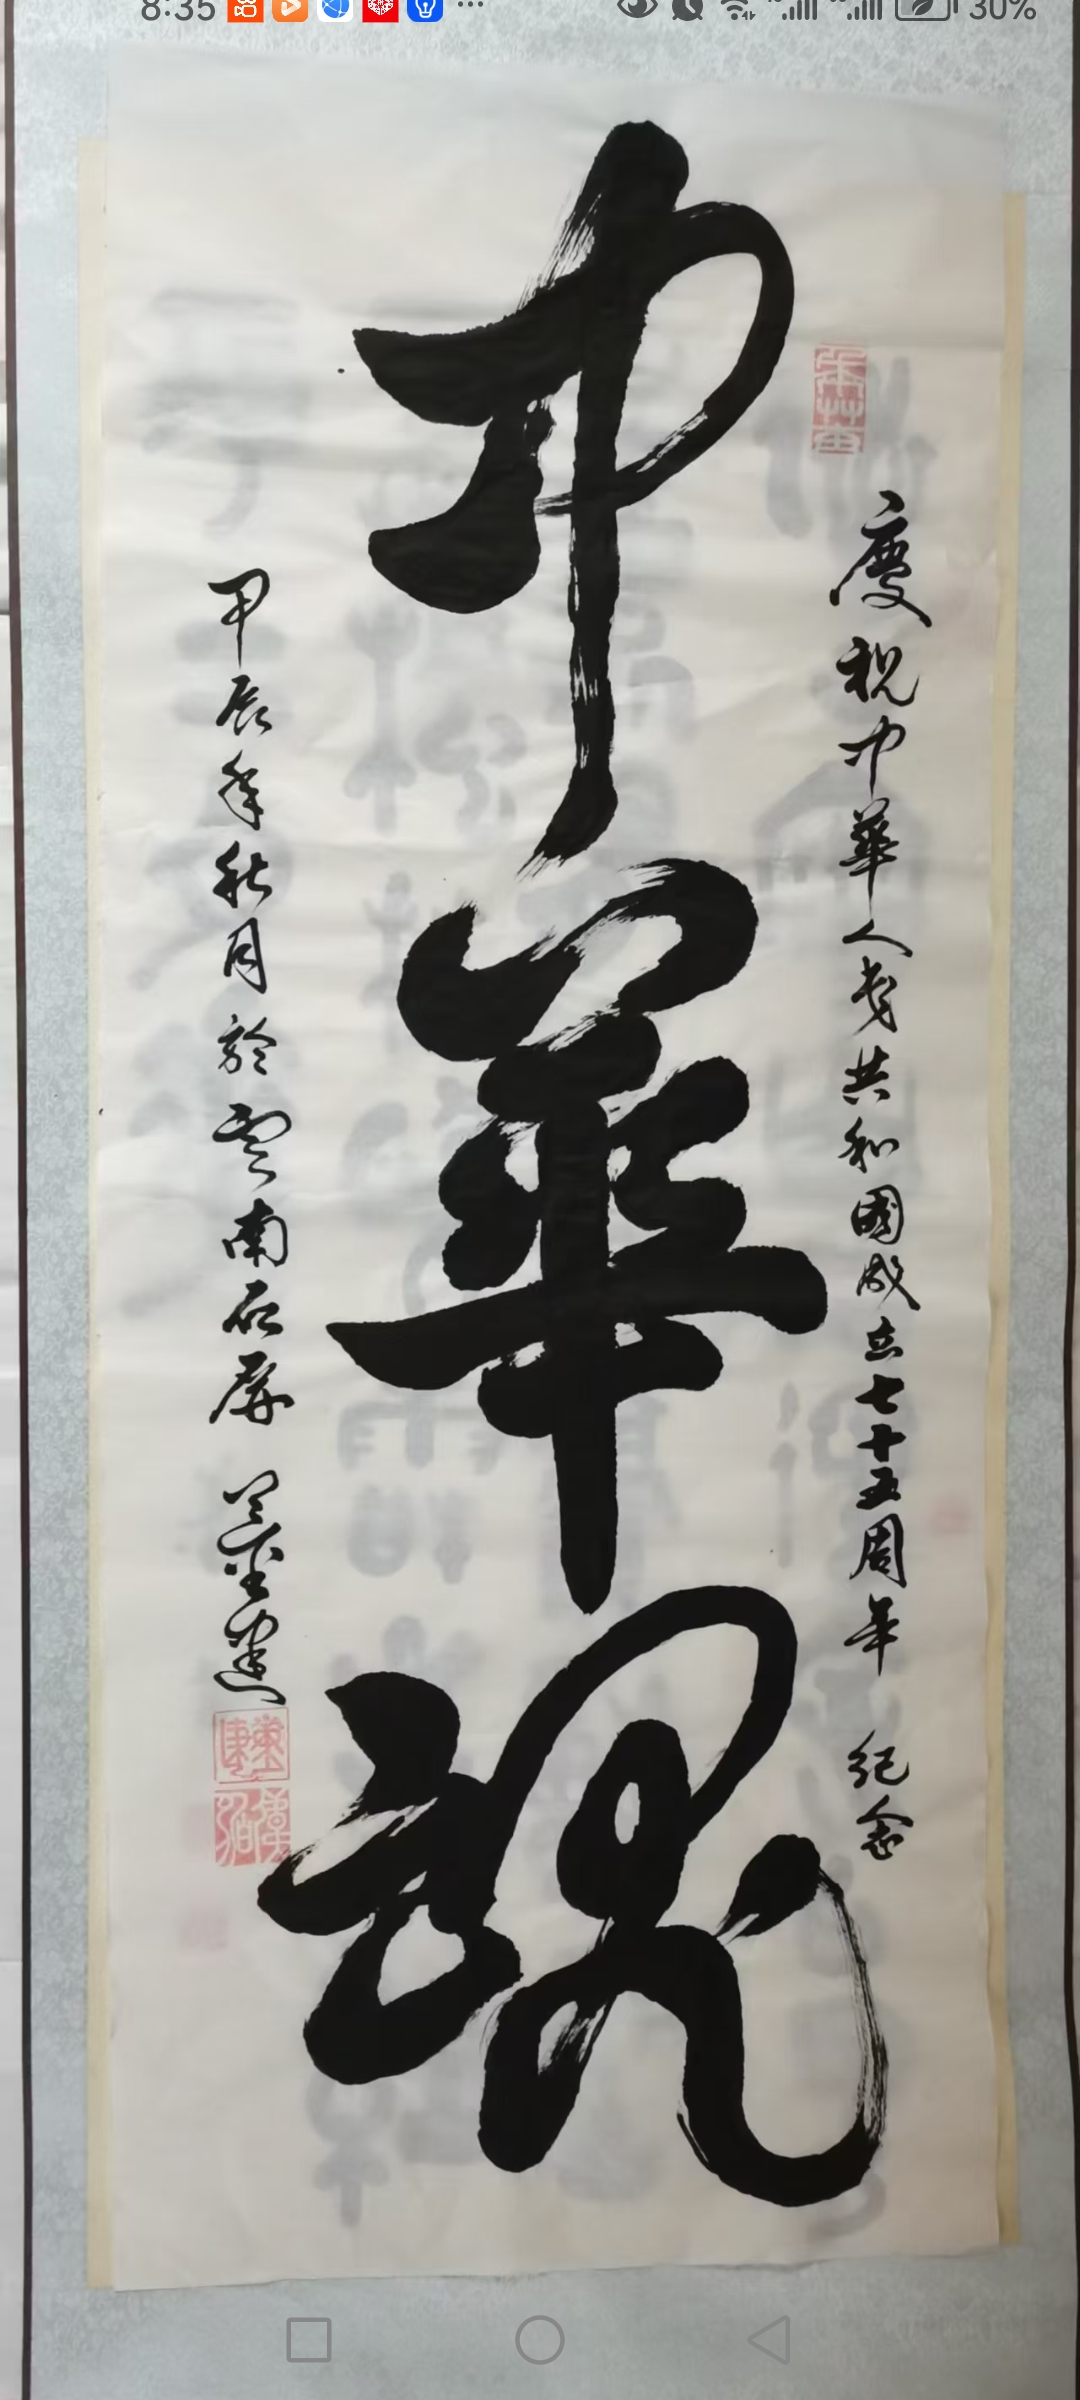 8:35
30%
慶祝中華人民共和國成立七十五周年 紀念
中華魂
甲辰年秋月於雲南石屏